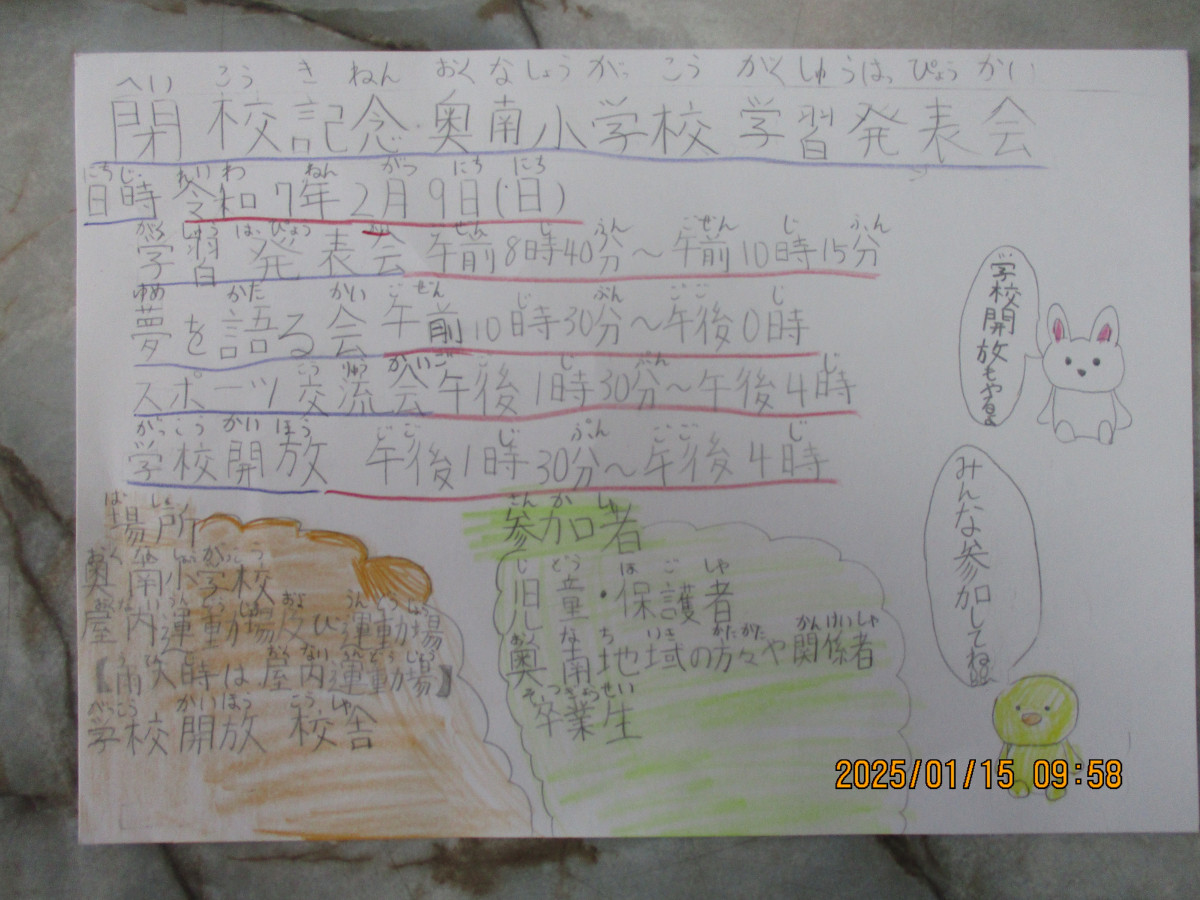 へいこうきねん おくなしょうがっこう がくしゅうはっぴょうかい
閉校記念 奥南小学校 学習発表会
にちじ れいわ ねん がつ にち にち
日時 令和7年2月9日(日)
がくしゅうはっぴょう ぜん じ ふん ごぜん じ ふん
学習発表会 午前8時40分～午前10時15分
ゆめ かた かい ごぜん じ ぷん ごご じ
夢を語る会 午前10時30分～午後0時
こうりゅうかい ご ご じ ぷん じ
スポーツ交流会 午後1時30分～午後4時
がっこうかいほう ごご じ ぷん ごご じ
学校開放 午後1時30分～午後4時
学校開放もやるよ
みんな参加してね
ばしょ
場所
おくなしょうがっこう
奥南小学校
おくないうんどうじょうおよ うんどうじょう
屋内運動場及び運動場
【雨天時は屋内運動場】
がっこうかいほう こうしゃ
学校開放 校舎
さんかしゃ
参加者
じどう ほごしゃ
児童・保護者
おくな ちいき かたがた かんけいしゃ
奥南地域の方々や関係者
そつぎょうせい
卒業生
2025/01/15 09:58